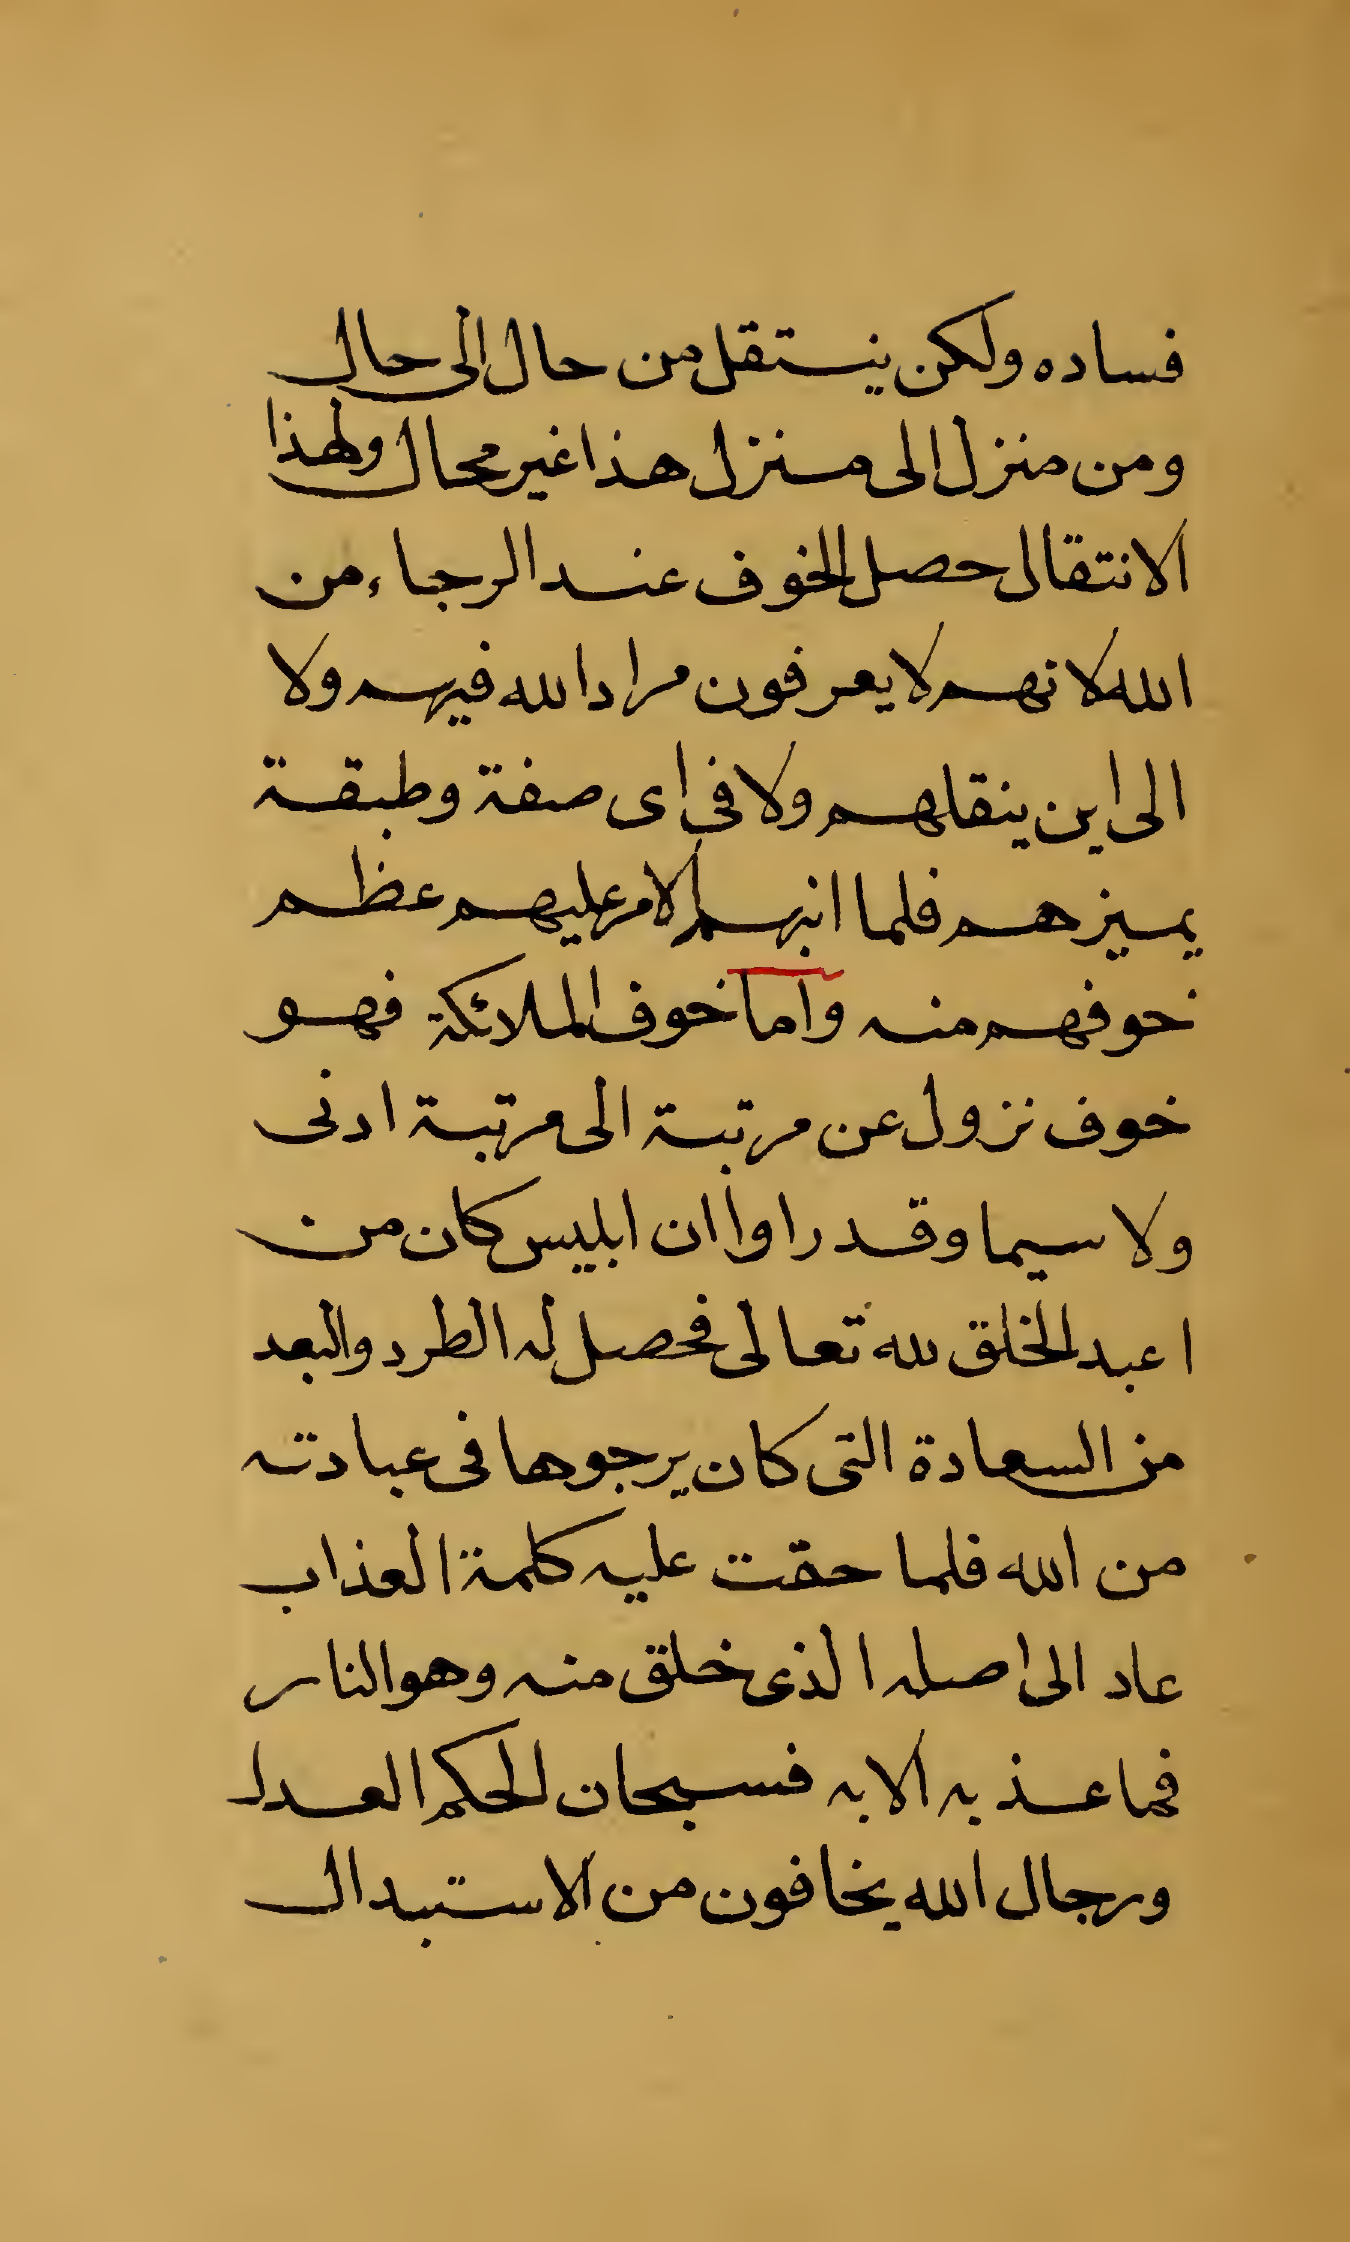 فساده ولكن ينستقل من حال الى حال
ومن منزل الى منزل هذا غير محال ولهذا
الانتقال حصل الخوف عند الرجاء من
الله لانهم لا يعرفون مراد الله فيهم ولا
الى اين ينقلهم ولا فى اى صفة وطبقة
يميزهم فلما انبهم الامر عليهم عظم
خوفهم منه واما خوف الملائكة فهو
خوف نزول عن مرتبة الى مرتبة ادنى
ولا سيما وقد راوا ان ابليس كان من
اعبد الخلق لله تعالى فحصل له الطرد والبعد
من السعادة التى كان يرجوها فى عبادته
من الله فلما حقت عليه كلمة العذاب
عاد الى اصله الذى خلق منه وهو النار
فما عذب به الا به فسبحان الحكم العدل
ورجال الله يخافون من الاستبدال